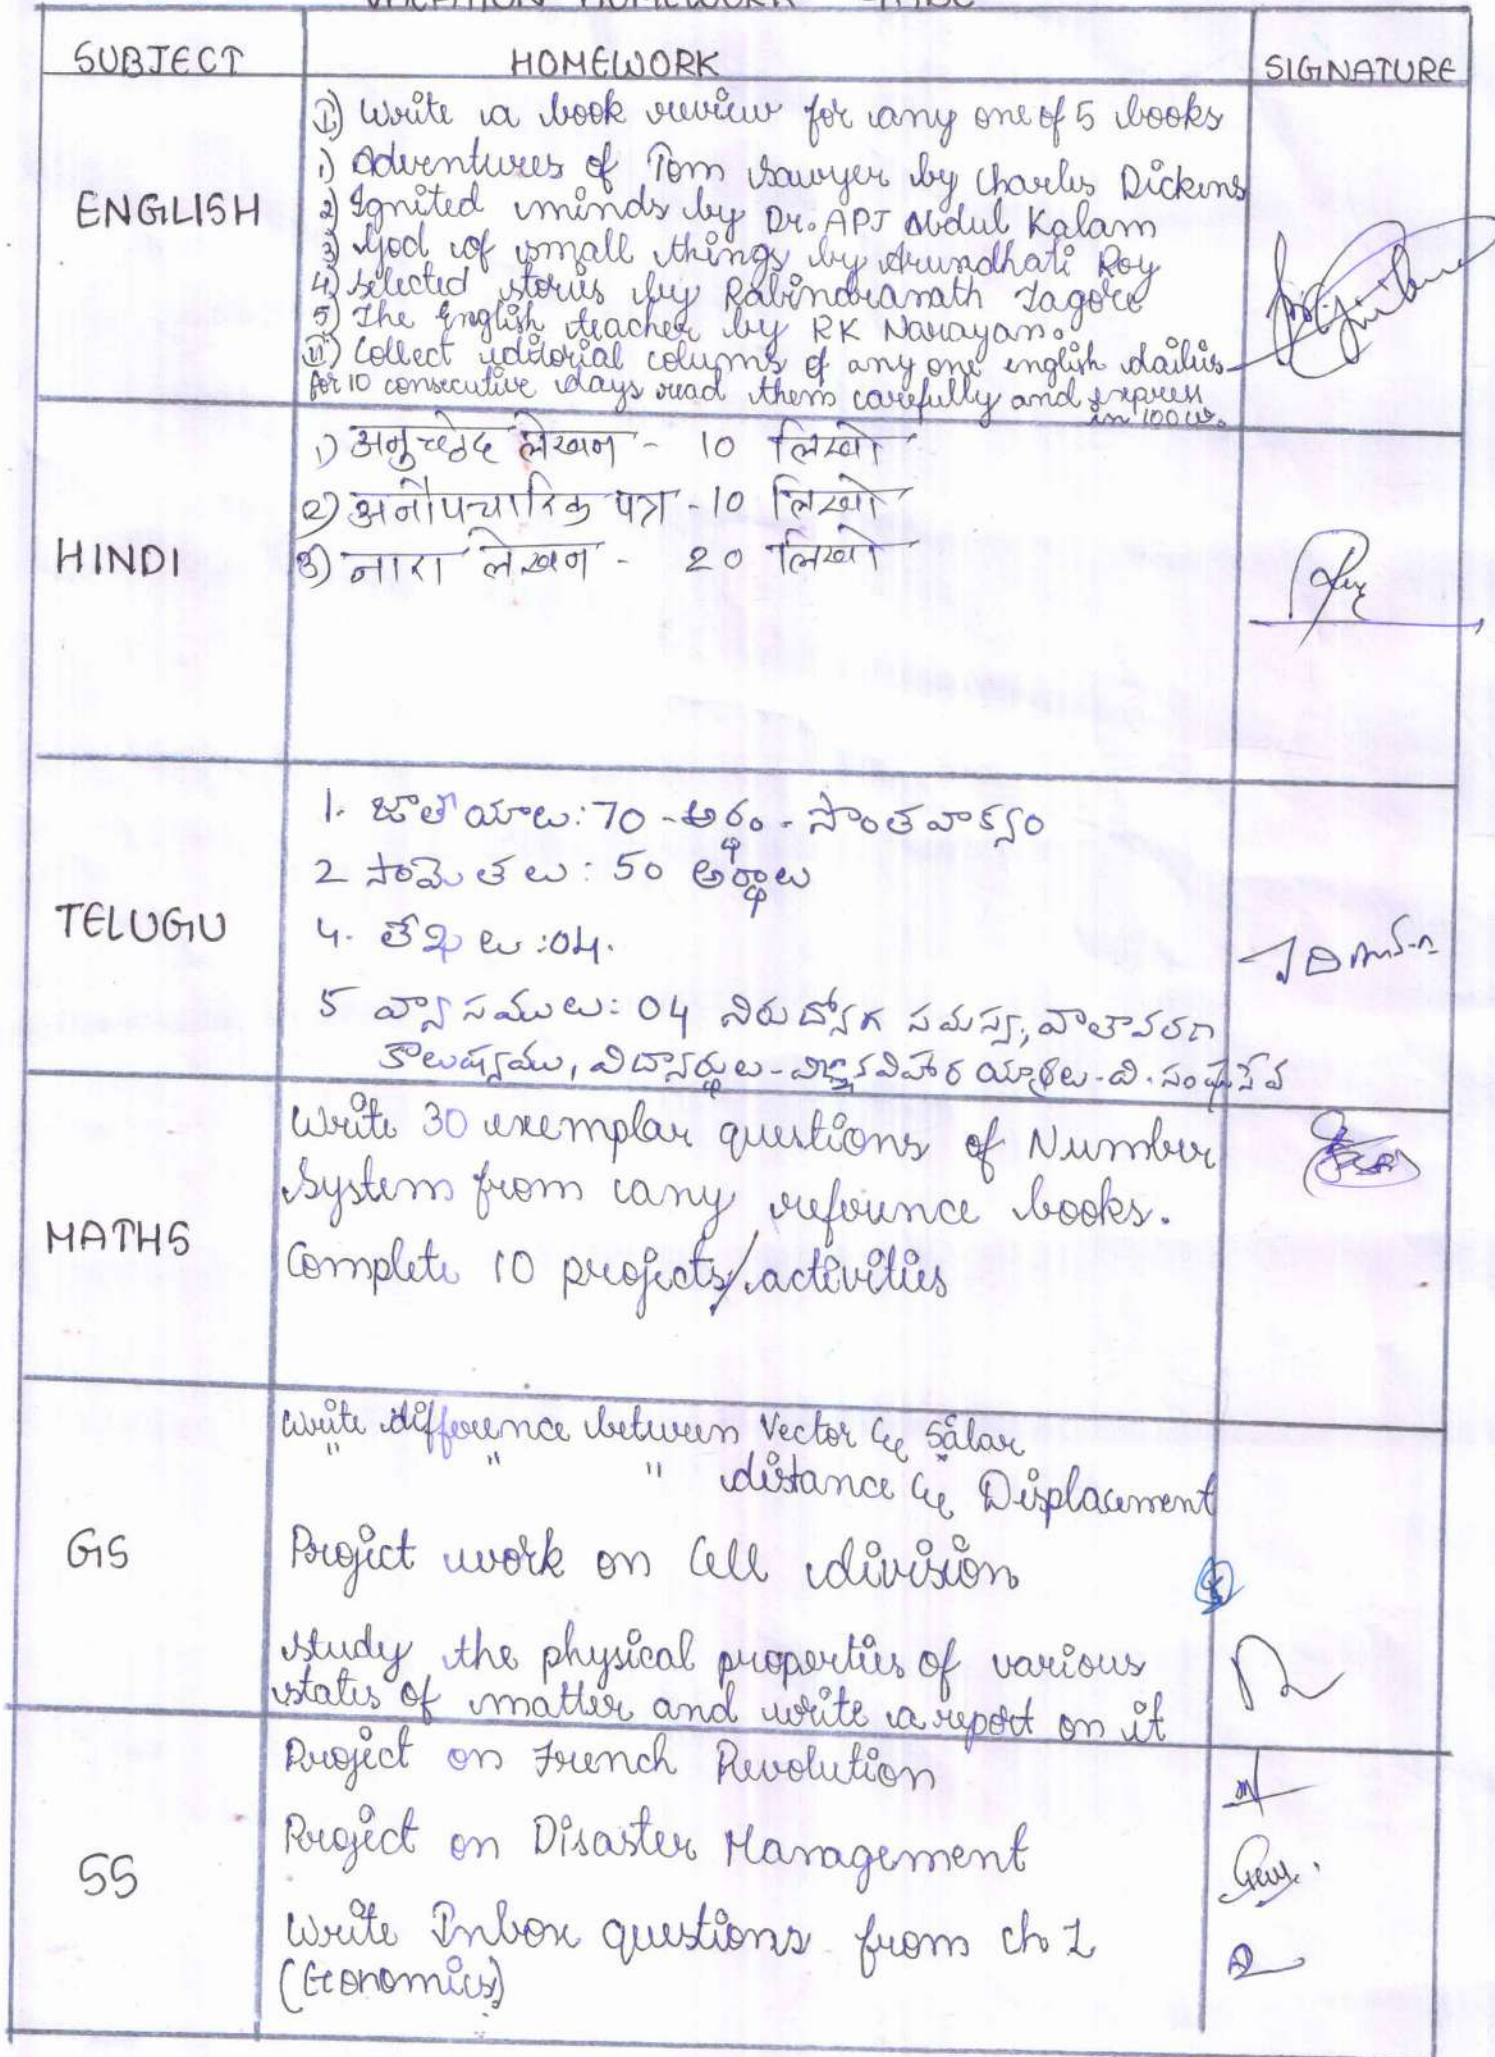 VACATION HOMEWORK
SUBJECT HOMEWORK SIGNATURE
ENGLISH
I) Write a book review for any one of 5 books
1) Adventures of Tom Sawyer by Charles Dickens
2) Ignited minds by Dr. APJ Abdul Kalam
3) God of small things by Arundhati Roy
4) Selected stories by Rabindranath Tagore
5) The English teacher by RK Narayan.
II) Collect editorial columns of any one english dailies
for 10 consecutive days read them carefully and express
in 100 w.
HINDI
1) अनुच्छेद लेखन - 10 लिखो
2) अनौपचारिक पत्र - 10 लिखो
3) नारा लेखन - 20 लिखो
TELUGU
1. జాతీయాలు: 70 - అర్థం - సొంతవాక్యం
2 సామెతలు: 50 అర్థాలు
4. లేఖలు: 04.
5 వ్యాసములు: 04 నిరుద్యోగ సమస్య, వాతావరణ
కాలుష్యము, విద్యార్థులు - విజ్ఞానవిహార యాత్రలు - వి. సంఘసేవ
MATHS
Write 30 exemplar questions of Number
System from any reference books.
Complete 10 projects/activities
GS
Write difference between Vector & Salar
" " " distance & Displacement
Project work on Cell division
study the physical properties of various
states of matter and write a report on it
SS
Project on French Revolution
Project on Disaster Management
Write Inbox questions from ch 1
(Economics)